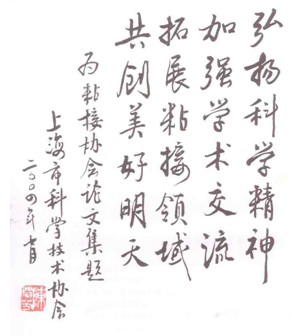 弘扬科学精神
加强学术交流
拓展粘接领域
共创美好明天
为粘接协会论文集题
上海市科学技术协会
二〇〇四年七月